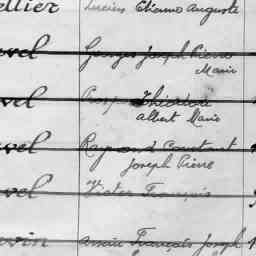 ellier Lucien Etienne Auguste
vel Georges Joseph Pierre
Marie
vel Prosper Théodore
Albert Marie
vel Raymond Constant
Joseph Pierre
vel Victor François
vin Aimée François Joseph